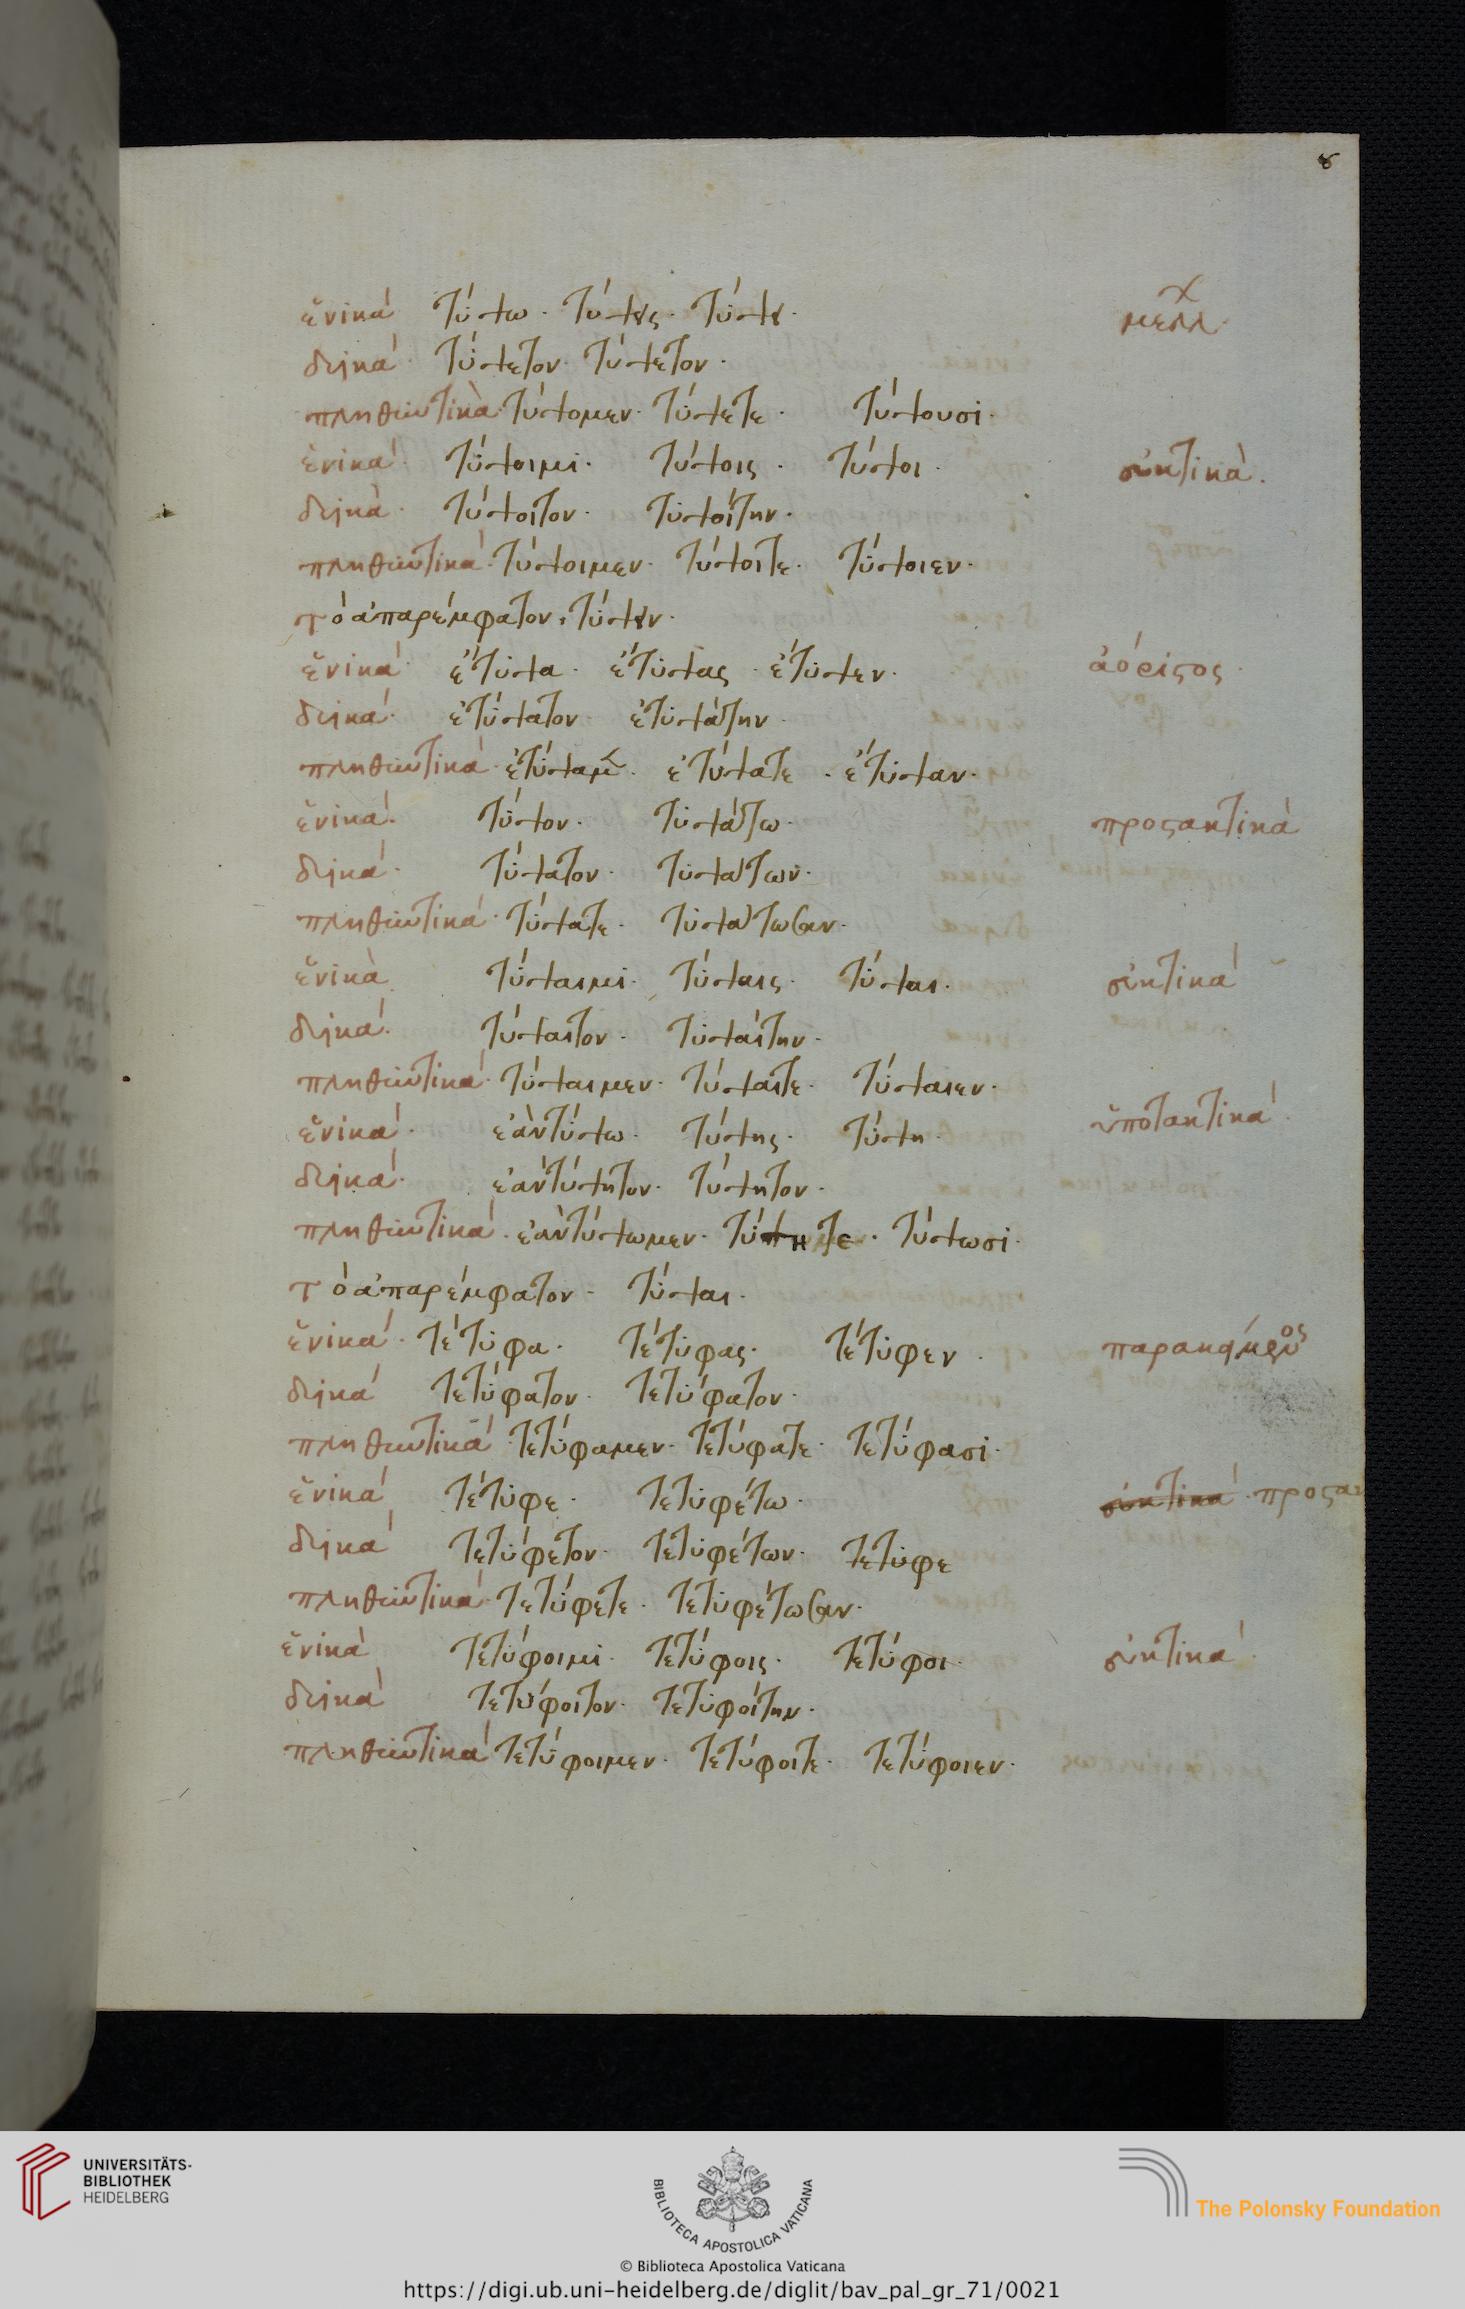 8
ἑνικά τύψω · τύψεις · τύψει · μελλ
δυϊκά · τύψετον · τύψετον ·
πληθυντικὰ τύψομεν · τύψετε · τύψουσι ·
ἑνικά · τύψοιμι · τύψοις · τύψοι · εὐκτικὰ .
δυϊκὰ · τύψοιτον · τυψοίτην ·
πληθυντικά · τύψοιμεν · τύψοιτε · τύψοιεν ·
τὸ ἀπαρέμφατον · τύψειν ·
ἑνικά · ἔτυψα · ἔτυψας · ἔτυψεν · ἀόριστος ·
δυϊκά · ἐτύψατον · ἐτυψάτην ·
πληθυντικά · ἐτύψαμεν · ἐτύψατε · ἔτυψαν ·
ἑνικά · τύψον · τυψάτω · προστακτικὰ
δυϊκά · τύψατον · τυψάτων ·
πληθυντικά · τύψατε · τυψάτωσαν ·
ἑνικὰ τύψαιμι · τύψαις · τύψαι · εὐκτικά
δυϊκά · τύψαιτον · τυψαίτην ·
πληθυντικά · τύψαιμεν · τύψαιτε · τύψαιεν ·
ἑνικά · ἐὰν τύψω · τύψης · τύψη · ὑποτακτικά ·
δυϊκά · ἐὰν τύψητον · τύψητον ·
πληθυντικά · ἐὰν τύψωμεν · τύψητε · τύψωσι ·
τὸ ἀπαρέμφατον · τύψαι ·
ἑνικά · τέτυφα · τέτυφας · τέτυφεν · παρακείμενος
δυϊκά τετύφατον · τετύφατον ·
πληθυντικά τετύφαμεν · τετύφατε · τετύφασι ·
ἑνικά τέτυφε · τετυφέτω · εὐκτικά · προστα
δυϊκά τετύφετον · τετυφέτων · τετυφε
πληθυντικά · τετύφετε · τετυφέτωσαν ·
ἑνικά τετύφοιμι · τετύφοις · τετύφοι · εὐκτικά ·
δυϊκά τετύφοιτον · τετυφοίτην ·
πληθυντικά τετύφοιμεν · τετύφοιτε · τετύφοιεν ·
UNIVERSITÄTS-
BIBLIOTHEK
HEIDELBERG
BIBLIOTECA APOSTOLICA VATICANA
The Polonsky Foundation
© Biblioteca Apostolica Vaticana
https://digi.ub.uni-heidelberg.de/diglit/bav_pal_gr_71/0021